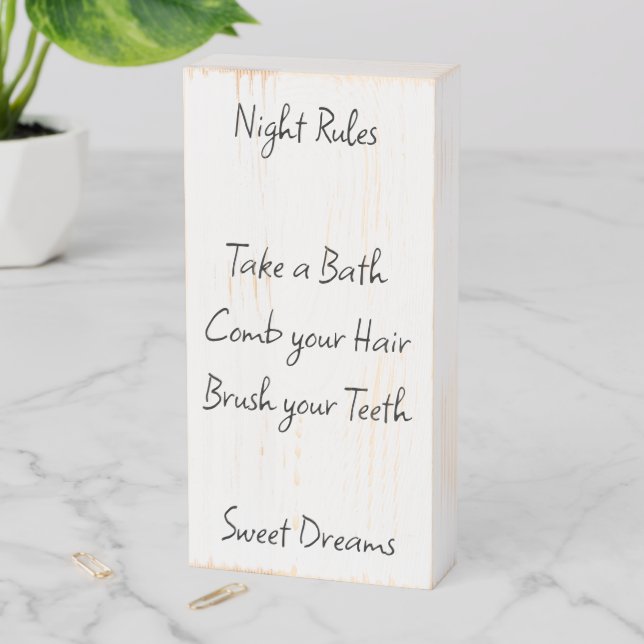 Night Rules
Take a Bath
Comb your Hair
Brush your Teeth
Sweet Dreams